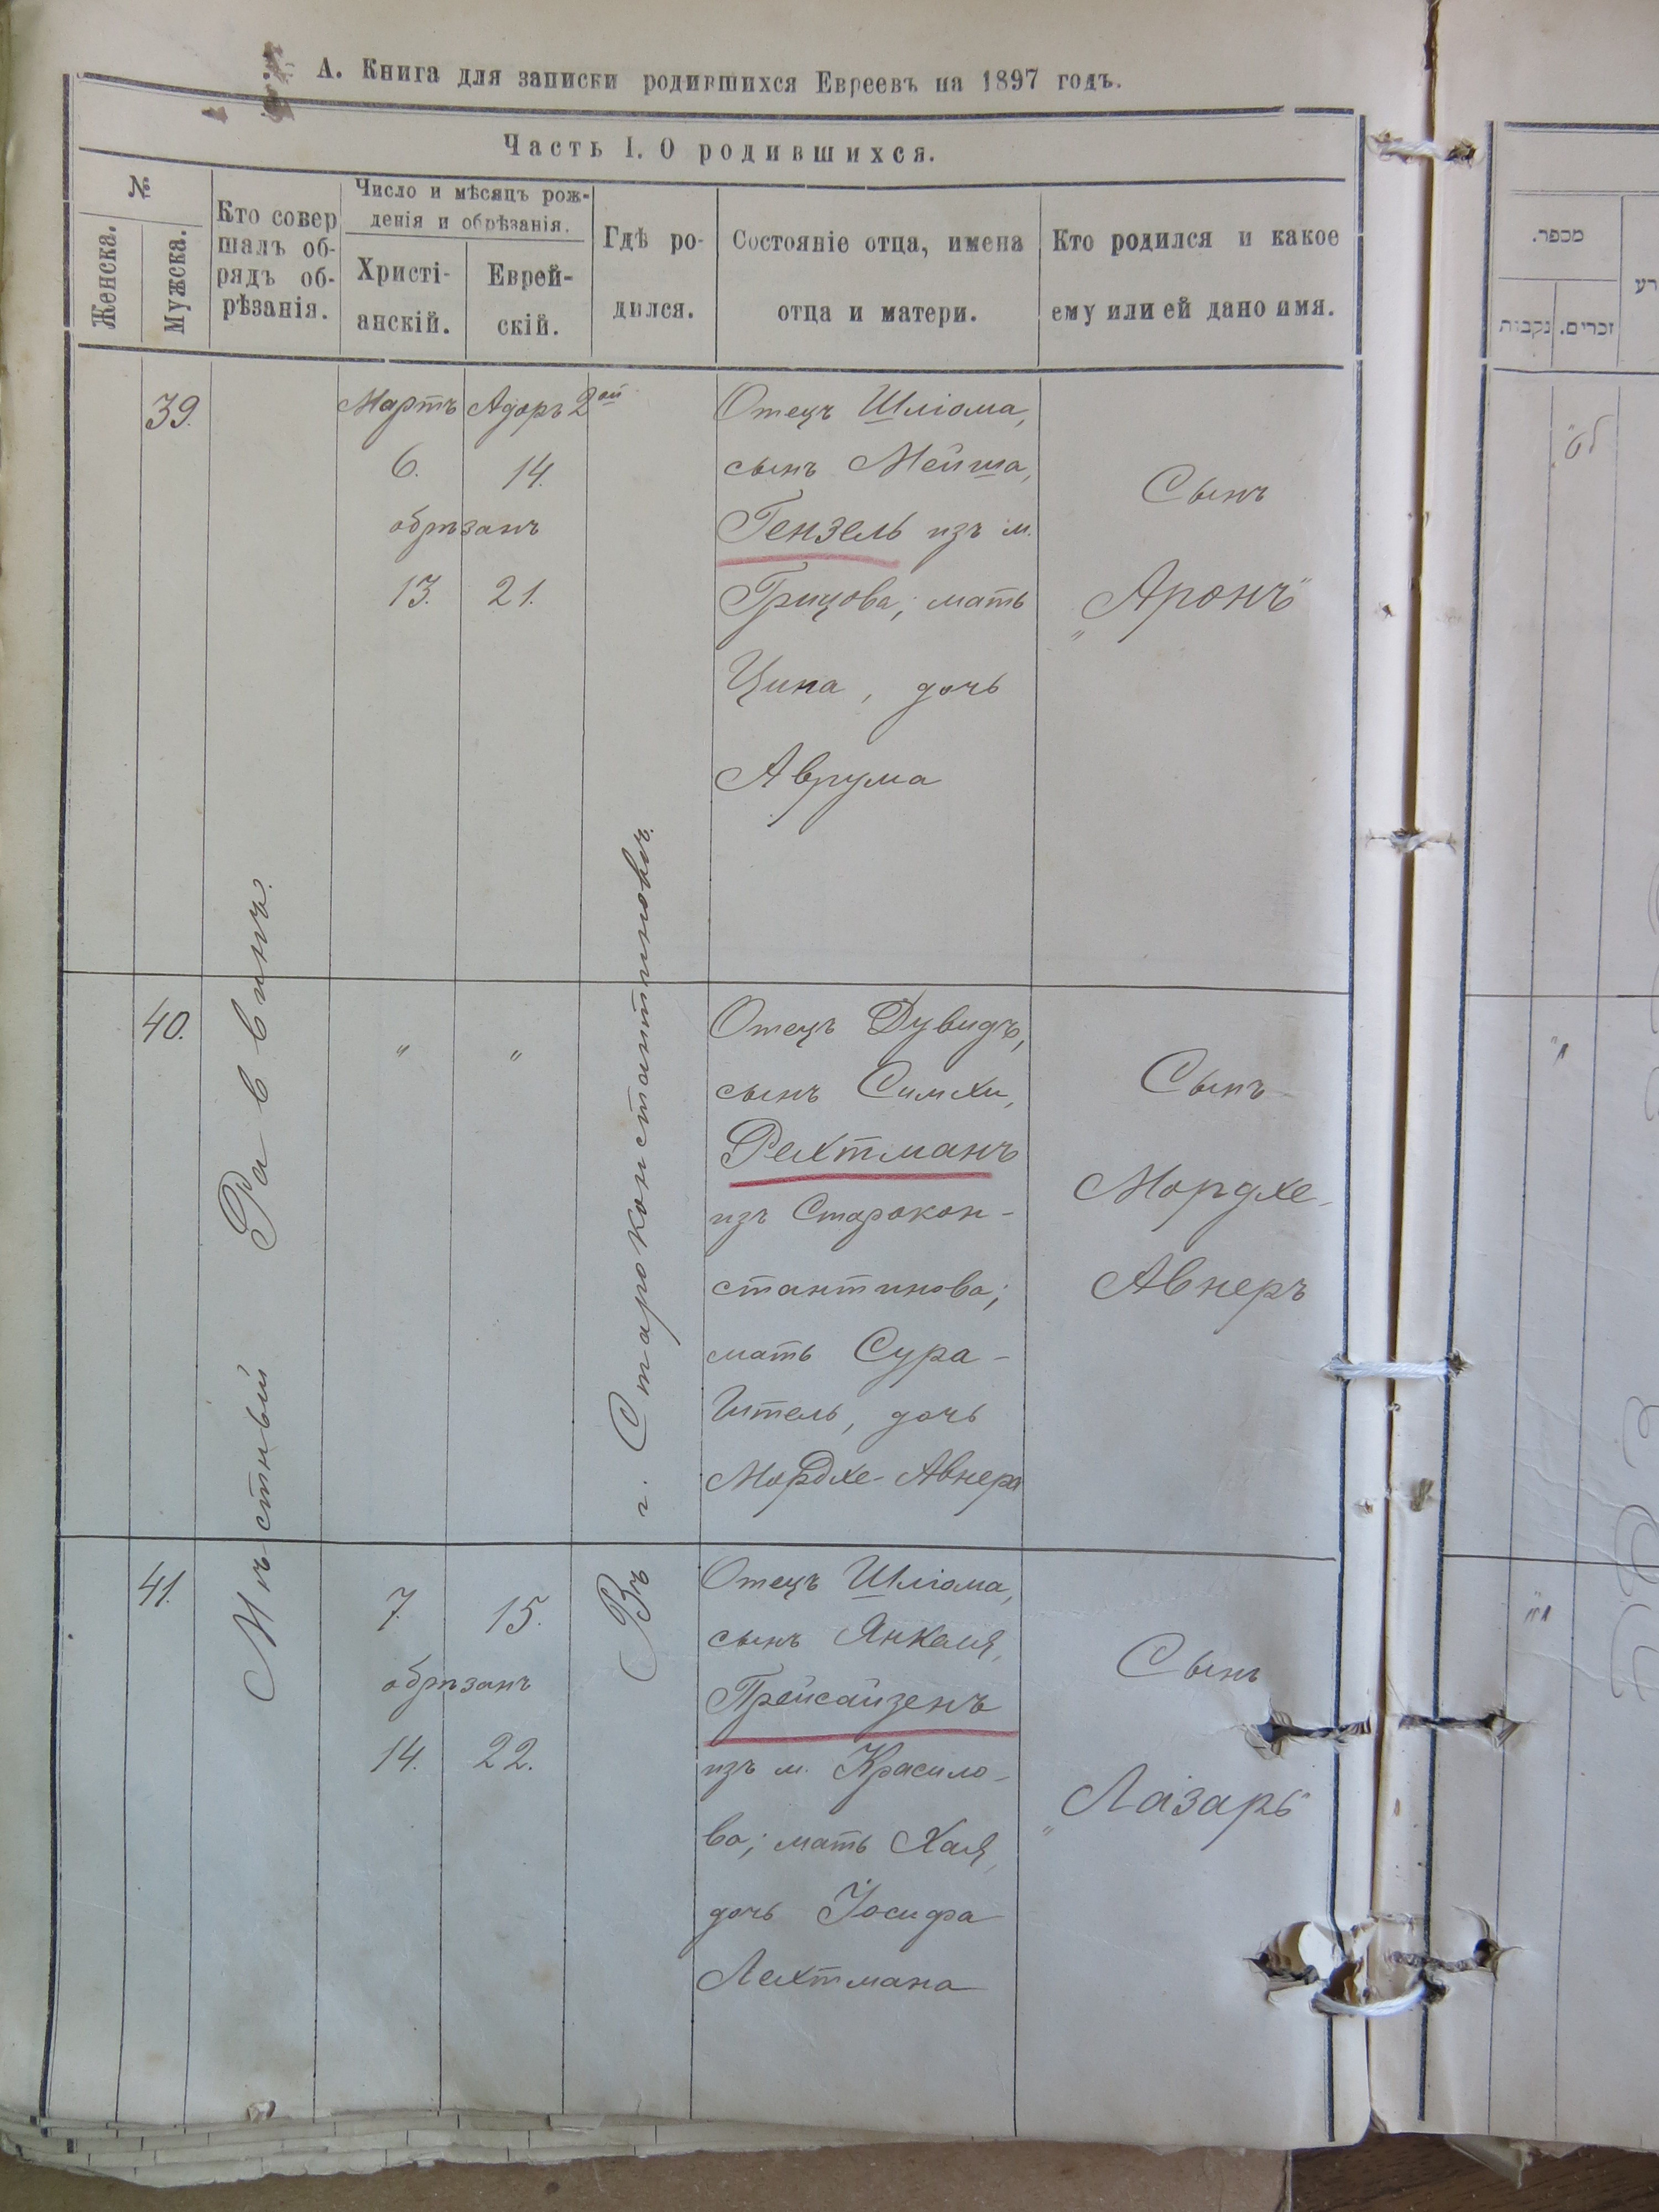 А. Книга для записки родившихся Евреевъ на 1897 годъ.
Часть I. О родившихся.
№
Женска.
Мужска.
Кто совер
шалъ об-
рядъ об-
рѣзанія.
Число и мѣсяцъ рож-
денія и обрѣзанія.
Христі-
анскій.
Еврей-
скій.
Гдѣ ро-
дился.
Состояніе отца, имена
отца и матери.
Кто родился и какое
ему или ей дано имя.
מכפר.
זכרים.
נקבות
Мѣстный Раввинъ.
Въ г. Староконстантиновѣ.
39.
Мартъ
Адоръ 2ой
6.
14.
обрѣзанъ
13.
21.
Отецъ Шліома,
сынъ Мейша,
Гензель изъ м.
Грицова; мать
Ципа, дочь
Аврума
Сынъ
„Аронъ"
40.
"
"
Отецъ Дувидъ,
сынъ Симхи,
Рехтманъ
изъ Старокон-
стантинова;
мать Сура-
Ител​ь, дочь
Мордхе-Авнера
Сынъ
Мордхе-
Авнеръ
41.
7.
15.
обрѣзанъ
14.
22.
Отецъ Шліома,
сынъ Янкеля,
Прейсайзенъ
изъ м. Красило-
ва; мать Хая,
дочь Іосифа
Лехтмана
Сынъ
„Лазарь"